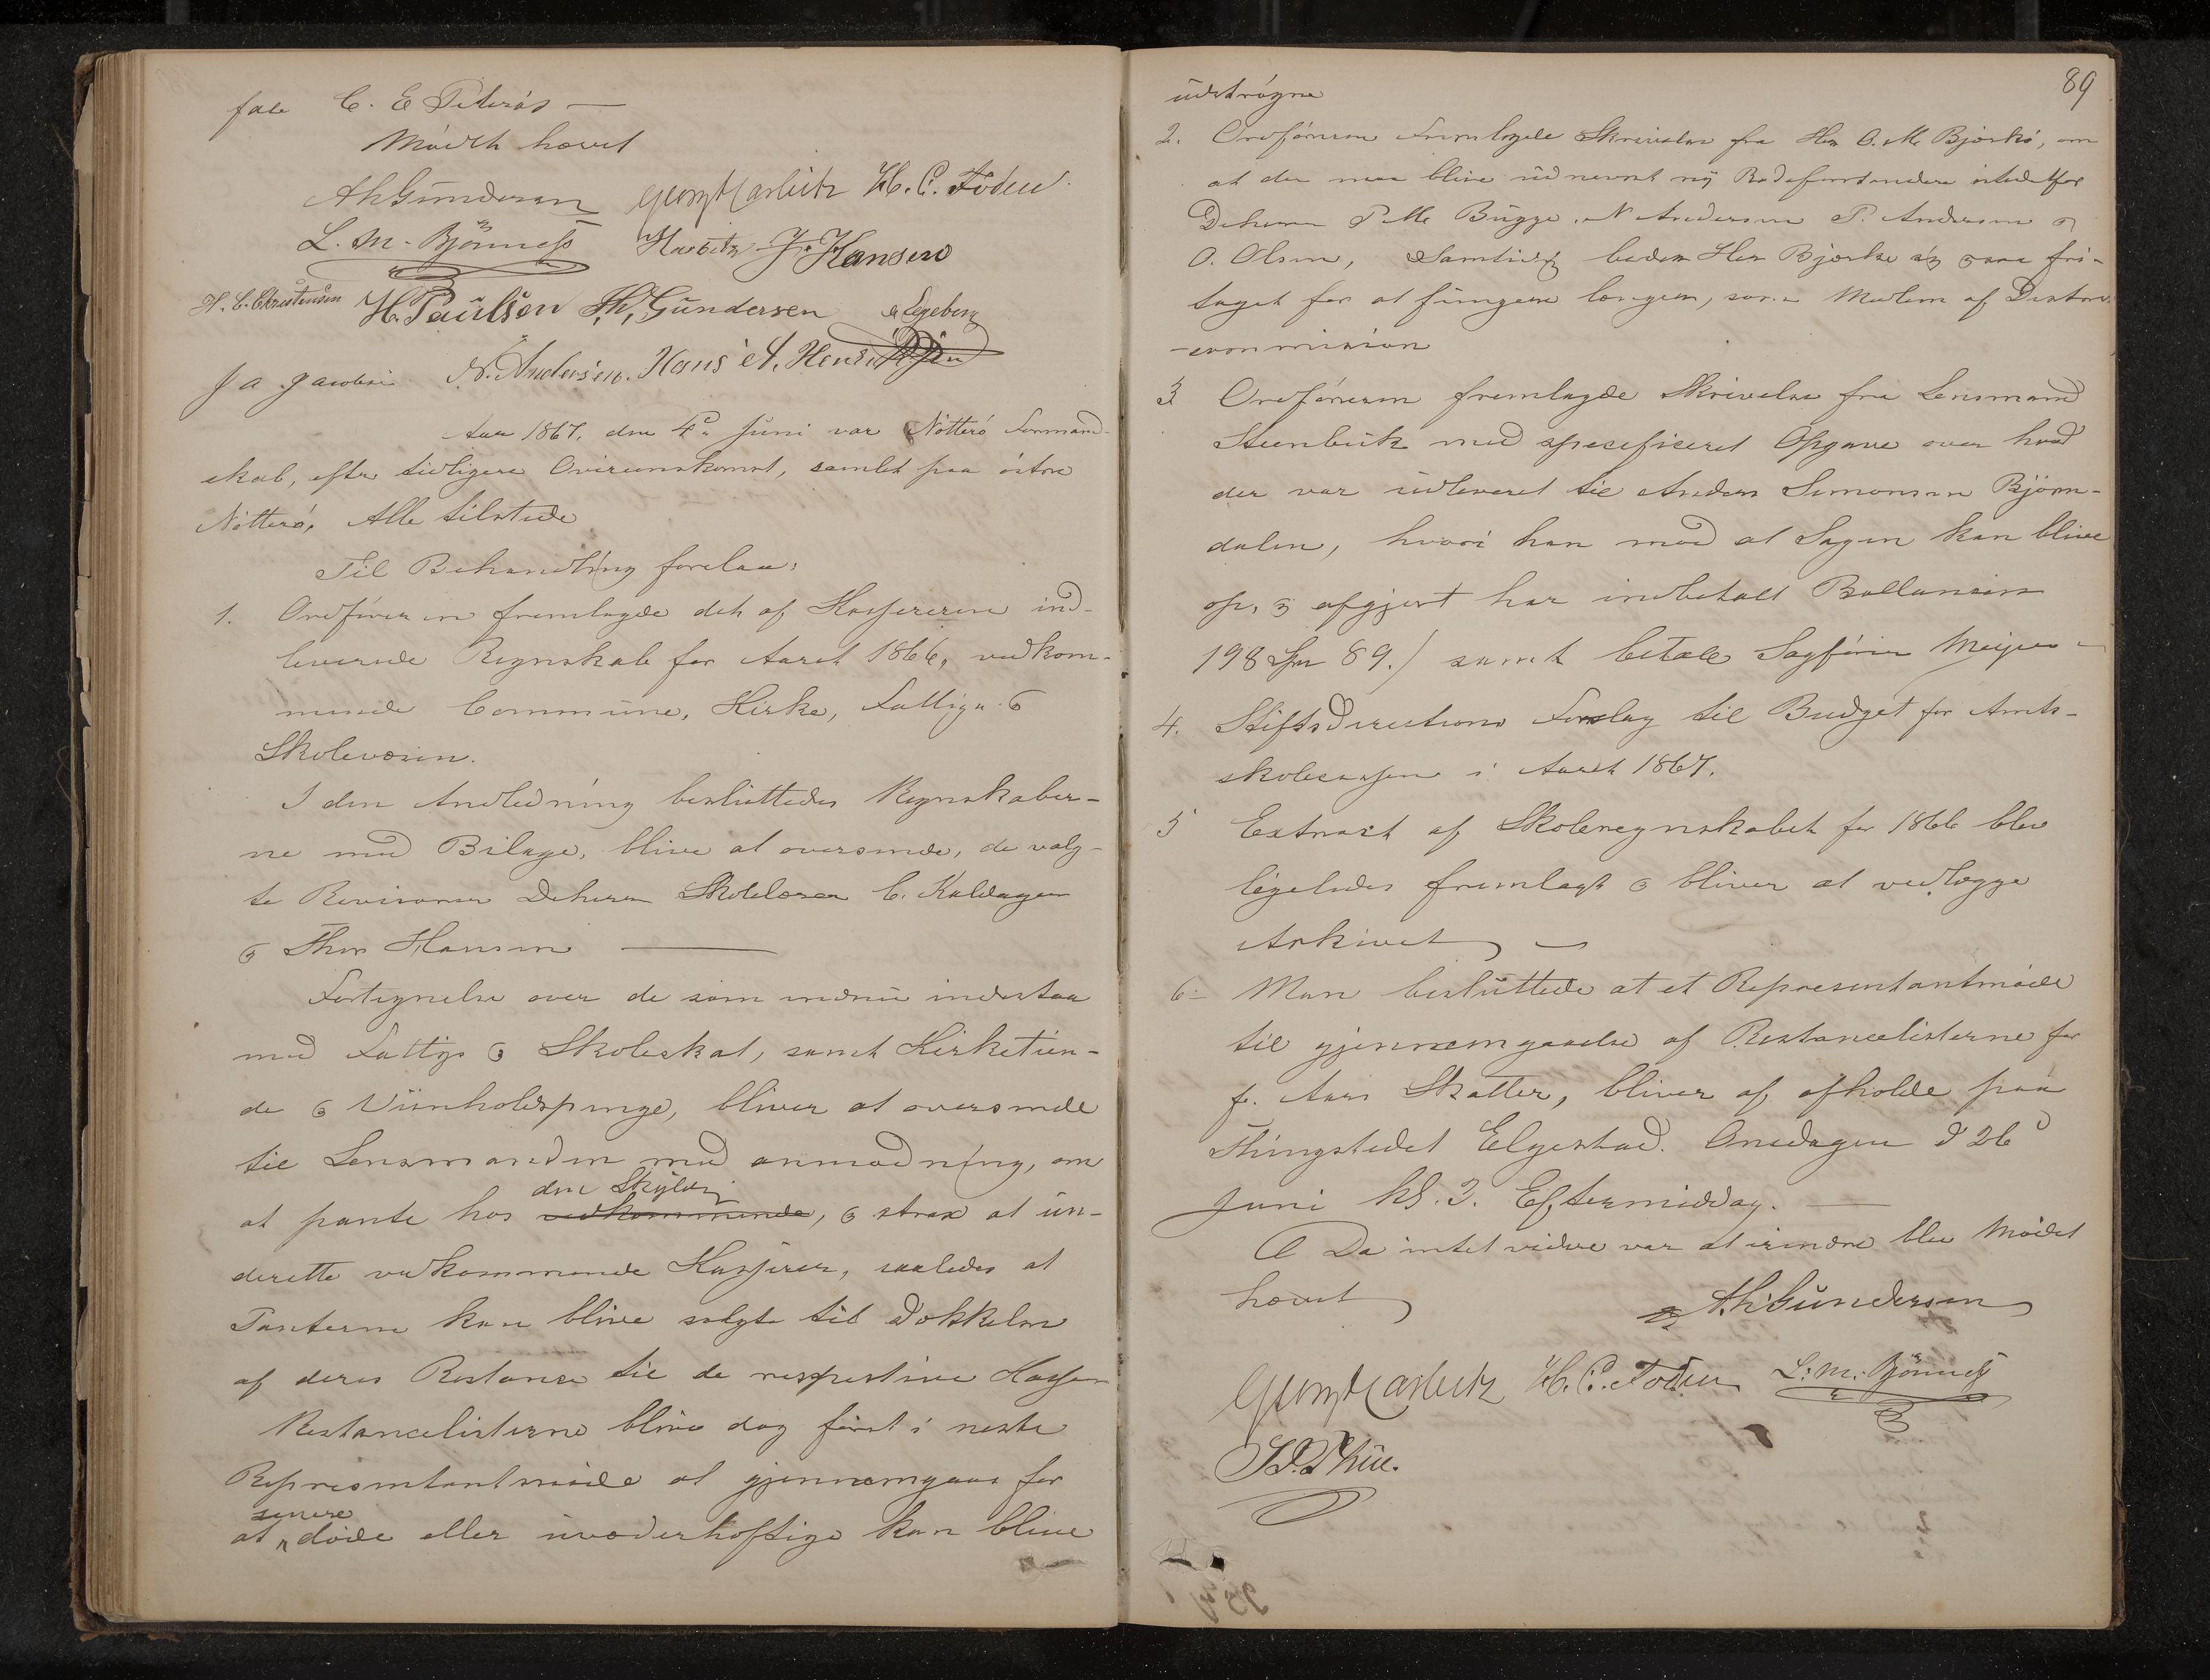 fale C. E Peterös —
Mödet hævet
A h Gundersen Georg Carlwitz H. C. Foden.
L. M. Bjönness J. Hansen
H. C. Christensen H. Paulsen Th, Gundersen
J A Jacobsen N. Andersen. Hans A. Henriksen
Aar 1867, den 4de Juni var Nötterö Formand-
skab, efter tidligere Overenskomst, samlet paa östre
Nötterö, Alle tilstede
Til Behandling forelaa:
1. Ordföreren fremlagde det af Kassereren ind-
leverede Regnskab for Aaret 1866, vedkom-
mende Commune, Kirke, Fattig- &
Skolevæsen.
I den Anledning besluttedes Regnskaber-
ne med Bilage, blive at oversende, de valg-
te Revisorer Deherrer Skolelærer C. Kaldager
& Thor Hansen —
Fortegnelse over de som endnu indestaa
med Fattig & Skoleskat, samt Kirketien-
de & Viinholdspenge, bliver at oversende
til Lensmanden med anmodning, om
den Skyldige
at pante hos vedkommende, & strax at un-
derette vedkommende Kasserer, saaledes at
Panterne kan blive solgte til Dækkelse
af deres Restance til de respective Kasser
Restancelisterne blive dog först i neste
Representantmöde at gjennemgaaes for
senere
at döde eller uvederhæftige kan blive
89
udströgne
2. Ordföreren Fremlagde Skrivelse fra Herr O. M. Bjerkö, om
at der maa blive udnevnt ny Rodeforstandere istedetfor
Deherrer P. M. Bugge, N Andersen P. Andersen &
O. Olsen, Samtidig beder Herr Bjerke sig være fri-
taget for at fungere længere, som Medlem af Distric
-commission
3 Ordföreren fremlagde Skrivelse fra Lensmand
Steenbuck med specificeret Opgave over hvad
der var udleveret til Anders Simonsen Björn-
dalen, hvori han mod at Sagen kan blive
op, & afgjort har indbetalt Ballancen
198 Spd 89./ samt betale Sagförer Meyer
4. Stiftsdirectionens Forslag til Budget for Amts-
skolecassen i Aaret 1867.
5 Extract af Skoleregnskabet for 1866 blev
ligeledes fremlagt & bliver at vedlægge
Arkivet —
6- Man besluttede at et Representantmöde
til gjennemgaaelse af Restancelisterne for
f. Aars Skatter, bliver af afholde paa
Thingstedet Elgestad. Onsdagen d 26d
Juni kl. 3. Eftermiddag. —
Da intet videre var at erindre blev Mödet
hævet
A. h. Gundersen
Georg Carlwitz H. C. Foden L. M. Bjönness